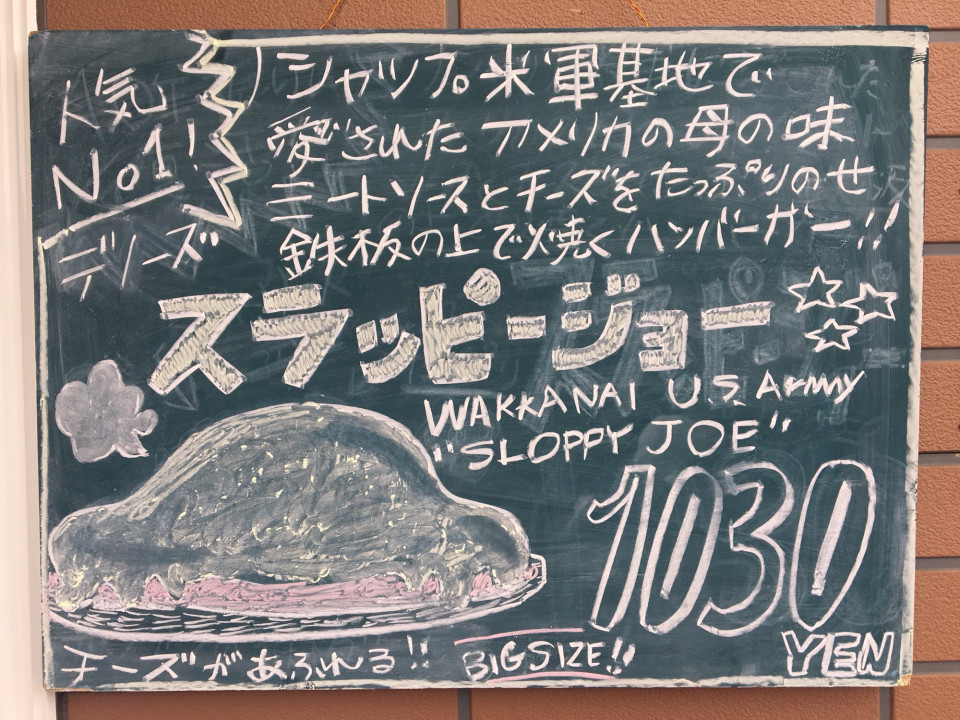 人気
No1!
デリーズ
シャップ。米軍基地で
愛されたアメリカの母の味
ミートソースとチーズをたっぷりのせ
鉄板の上で焼くハンバーガー!!
スラッピージョー
WAKKANAI U.S. Army
"SLOPPY JOE"
1030
YEN
チーズがあふれる!!
BIGSIZE!!